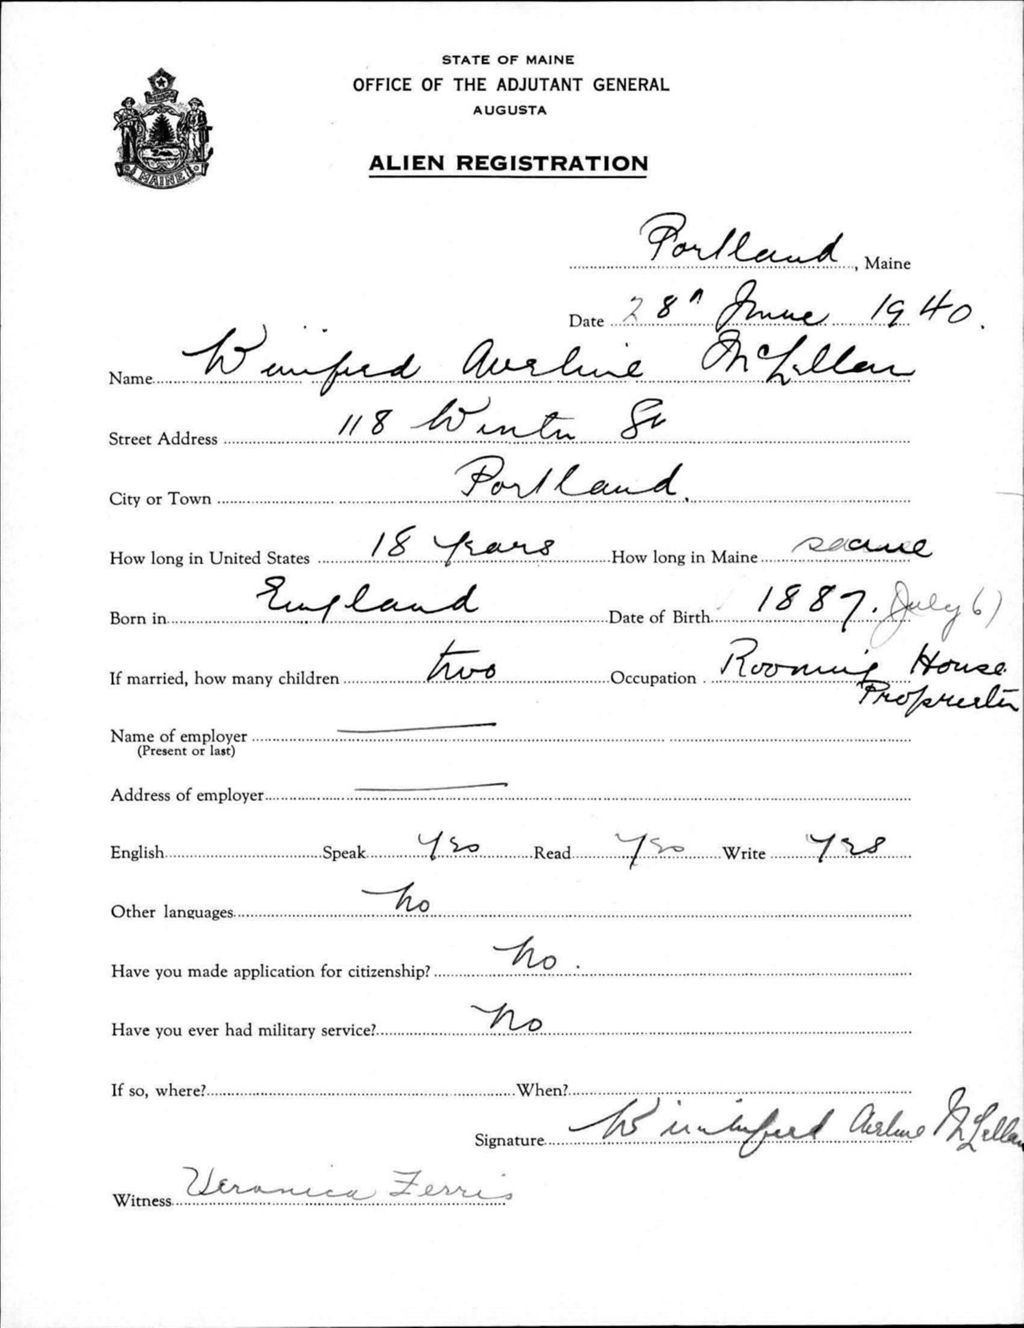 STATE OF MAINE
OFFICE OF THE ADJUTANT GENERAL
AUGUSTA
ALIEN REGISTRATION
MAINE
Portland, Maine
Date 28 June 1940.
Name Winifred Aveline McLellan
Street Address 118 Winter St
City or Town Portland.
How long in United States 18 years How long in Maine same
Born in England Date of Birth 1887. July 6)
If married, how many children two Occupation Rooming House
Proprietor
Name of employer
(Present or last)
Address of employer
English Speak yes Read yes Write yes
Other languages no
Have you made application for citizenship? no.
Have you ever had military service? no
If so, where? When?
Signature Winifred Aveline McLellan
Witness Veronica Ferris